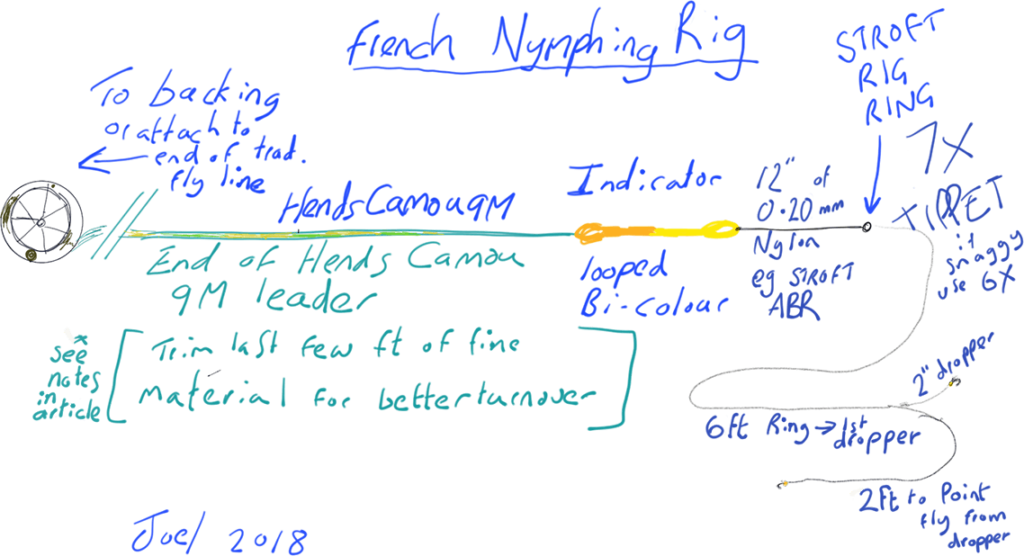 French Nymphing Rig
STROFT
RIG
RING
To backing
or attach to
end of trad.
fly line
Hends Camou 9M
Indicator
12" of
0.20 mm
Nylon
eg STROFT
ABR
7X
TIPPET
if
snaggy
use 6X
End of Hends Camou
9M leader
looped
Bi-colour
* see
notes
in
article
Trim last few ft of fine
material for better turnover
2" dropper
6ft Ring → 1st
dropper
2ft to Point
fly from
dropper
Joel 2018